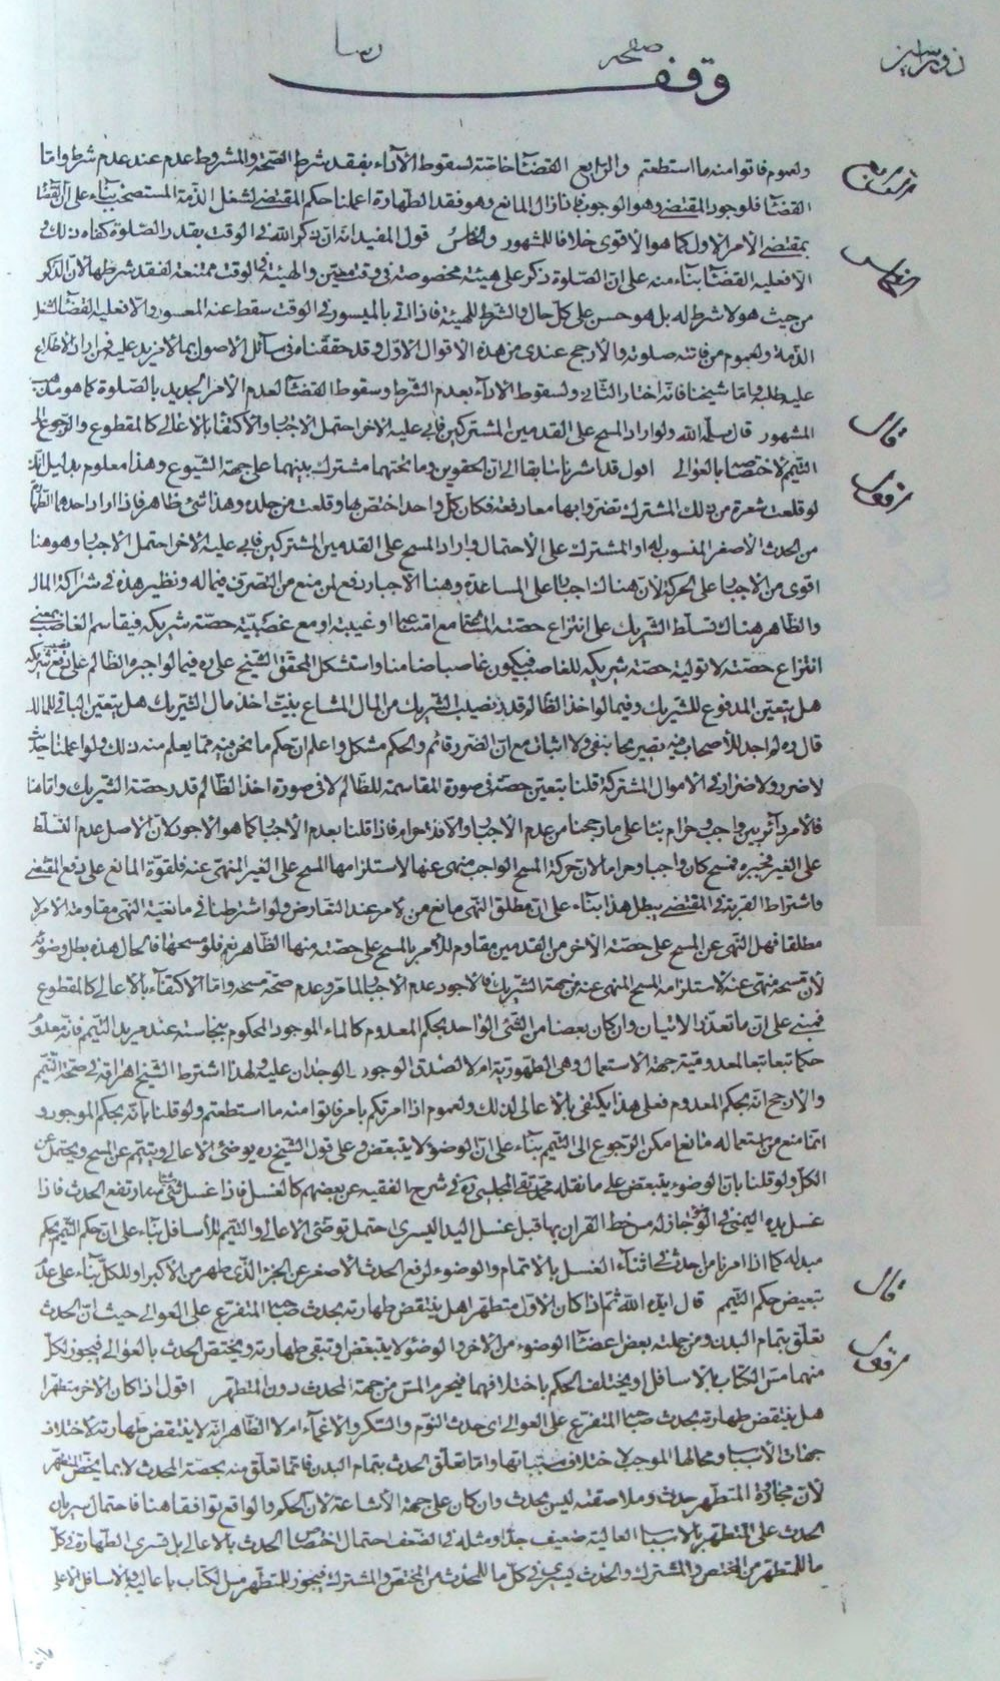 وقف
ولعموم فاتوا منه ما استطعتم والرابع القضاء خاصة لسقوط الأداء بفقد شرط الصحة والمشروط عدم عند عدم شرطه واما
القضاء فلوجود المقتضي وهو الوجوب فاذا زال المانع وهو فقد الطهارة اعملنا حكم المقتضي لشغل الذمة المستصحبة بناء على ان القضاء
بمقتضى الأمر الاول كما هو الاقوى خلافا للمشهور والخامس قول المفيد انه ان ذكر الله في الوقت بقدر الصلوة كفاه ذلك و
الا فعليه القضاء بناء منه على ان الصلوة ذكر على هيئة مخصوصة في وقت معين والهيئة في الوقت ممتنعة لفقد شرطها لان الذكر
من حيث هو لا شرط له بل هو حسن على كل حال والشرط للهيئة فاذا اتى بالميسور في الوقت سقط عنه المعسور والا فعليه القضاء لشغل
الذمة ولعموم من فاتته صلوته والأرجح عندي من هذه الاقوال الاول وقد حققناه في مسائل الاصول بما لا مزيد عليه فمن اراد الاطلاع
عليه طلبه واما شيخنا فانه اختار الثاني ولسقوط الاداء بعدم الشرط وسقوط القضاء لعدم الأمر الجديد بالصلوة كما هو مذهب
المشهور قال سلمه الله ولو اراد المسح على القدمين المشتركين فابى عليه الاخر احتمل الاجبار والاكتفاء بالاعالي كالمقطوع والرجوع الى
التيمم لاختصاصه بالعوالي اقول قد اشرنا سابقا الى ان الحقوين وما تحتهما مشترك بينهما على جهة الشيوع وهذا معلوم بدليل انك
لو قلعت شعرة من ذلك المشترك تضررا بها معا دفعة فكان كل واحد اختص بها وقلعت من جلده وهذا شئ ظاهر فاذا اراد احدهما الطهارة
من الحدث الأصغر المنسوب له او المشترك على الاحتمال واراد المسح على القدمين المشتركين فابى عليه الاخر احتمل الاجبار وهو هنا
اقوى من الاجبار على الحركة لأن هناك اجبارا على المساعدة وهنا الاجبار دفع لمن منع من التصرف فيما له ونظير هذه في شراكة المال
والظاهر هناك تسلط الشريك على انتزاع حصته المشاعة مع امتناعه او غيبته او مع غصبية حصة شريكه فيقاسم الغاصب بمعنى
انتزاع حصته لا تولية حصة شريكه للغاصب فيكون غاصبا ضامنا واستشكل المحقق الشيخ علي ره فيما لو اجبره الظالم على دفع نصيب شريكه
هل يتعين المدفوع للشريك وفيما لو اخذ الظالم قدر نصيب الشريك من المال المشاع بنية اخذ مال الشريك هل يتعين الباقي للمالك
قال ره لم اجد للأصحاب فيه تصريحا بنفي ولا اثبات مع ان الضرر قائم والحكم مشكل واعلم ان حكم ما نحن فيه مما يعلم منه ذلك ولو اعملنا حديث
لا ضرر ولا ضرار في الاموال المشتركة قلنا بتعين حصته في صورة المقاسمة للظالم لا في صورة اخذ الظالم قدر حصة الشريك واما هنا
فالامر دائر بين واجب وحرام بنا على ما رجحنا من عدم الاجبار والا فذو حرام فاذا قلنا بعدم الاجبار كما هو الأجود لان الأصل عدم التسلط
على الغير فجبره فمسح كان واجبا وحراما لان حركة المسح الواجب منهى عنها لاستلزامها المسح على الغير المنهى عنه فلقوة المانع على دفع المقتضي
واشتراط القربة في المقتضي يبطل هذا بناء على ان مطلق النهي مانع من الامر عند التعارض ولو اشترطنا في مانعية النهي مقاومته الأمر لا
مطلقا فهل النهي عن المسح على حصة الأخر من القدمين مقاوم للأمر بالمسح على حصته منها الظاهر نعم فلو مسحها والحال هذه بطل وضوئه
لأن مسحه منهى عنه لاستلزامه المسح المنهى عنه من جهة الشريك فالأجود عدم الاجبار لما مر وعدم صحة مسحه واما الاكتفاء بالاعالي كالمقطوع
فمبني على ان ما تعذر الاتيان وان كان بعضا من الشئ الواحد بحكم المعدوم كالماء الموجود المحكوم بنجاسته عند مريد التيمم فانه معدوم
حكما تبعا لمعدومية جهة الاستعمال وهي الطهورية ام لا لصدق الوجود الوجدان عليه ولهذا اشترط الشيخ اهراقه في صحة التيمم
والارجح انه بحكم المعدوم فعلى هذا يكتفي بالاعالي لذلك ولعموم اذا امرتكم بامر فاتوا منه ما استطعتم ولو قلنا بانه بحكم الموجود و
انما منع من استعماله مانع امكن الرجوع الى التيمم بناء على ان الوضوء لا يتبعض وعلى قول الشيخ ره يوضئ الاعالي ويتيمم عن المسح ويحتمل عن
الكل ولو قلنا بان الوضوء يتبعض على ما نقله محمد تقي المجلسي ره في شرح الفقيه عن بعضهم كالغسل فاذا غسل شئ منه ارتفع الحدث فاذا
غسل يده اليمنى في الوضوء جاز له مس خط القران بها قبل غسل اليد اليسرى احتمل توضئ الاعالي والتيمم للأسافل بناء على ان حكم التيمم بحكم
مبدله كما اذا امرنا من احدث في اثناء الغسل بالاتمام والوضوء لرفع الحدث الأصغر عن الجزء الذي طهر من الاكبر او للكل بناء على عدم
تبعيض حكم التيمم قال ايده الله ثم اذا كان الأول متطهرا هل ينتقض طهارته بحدث صاحبه المتفرع على العوالي حيث ان الحدث
تعلق بتمام البدن ومن جملته بعض اعضاء الوضوء من الاخر والوضوء لا يتبعض او تبقى طهارته ويختص الحدث بالعوالي فيجوز لكل
منهما مس الكتاب بالاسافل او يختلف الحكم باختلافهما فيحرم المس من جهة المحدث دون المتطهر اقول اذا كان الاخر متطهرا
هل ينتقض طهارته بحدث صاحبه المتفرع على العوالي اي حدث النوم والسكر والاغماء ام لا الظاهر انه لا ينتقض طهارته لاختلاف
جهات الأسباب ومحالها الموجب لاختلاف مسبباتها واما تعلق الحدث بتمام البدن فانما تعلق منه بحصة المحدث لا بما يخص المتطهر
لأن مجاورة المتطهر حدث وملاصقته ليس بحدث وان كان على جهة الأشاعة لان الحكم والواقع توافقا هنا فاحتمال سريان
الحدث على المتطهر بالاسباب العالية ضعيف جدا ومثله في الضعف احتمال اختصاص الحدث بالاعالي بل تسرى الطهارة في كل
ما للمتطهر من المختص والمشترك والحدث يسري في كل ما للمحدث من المختص والمشترك فيجوز للمتطهر مس الكتاب باعاليه وبالاسافل الاعلى
قال
اقول
قال
اقول